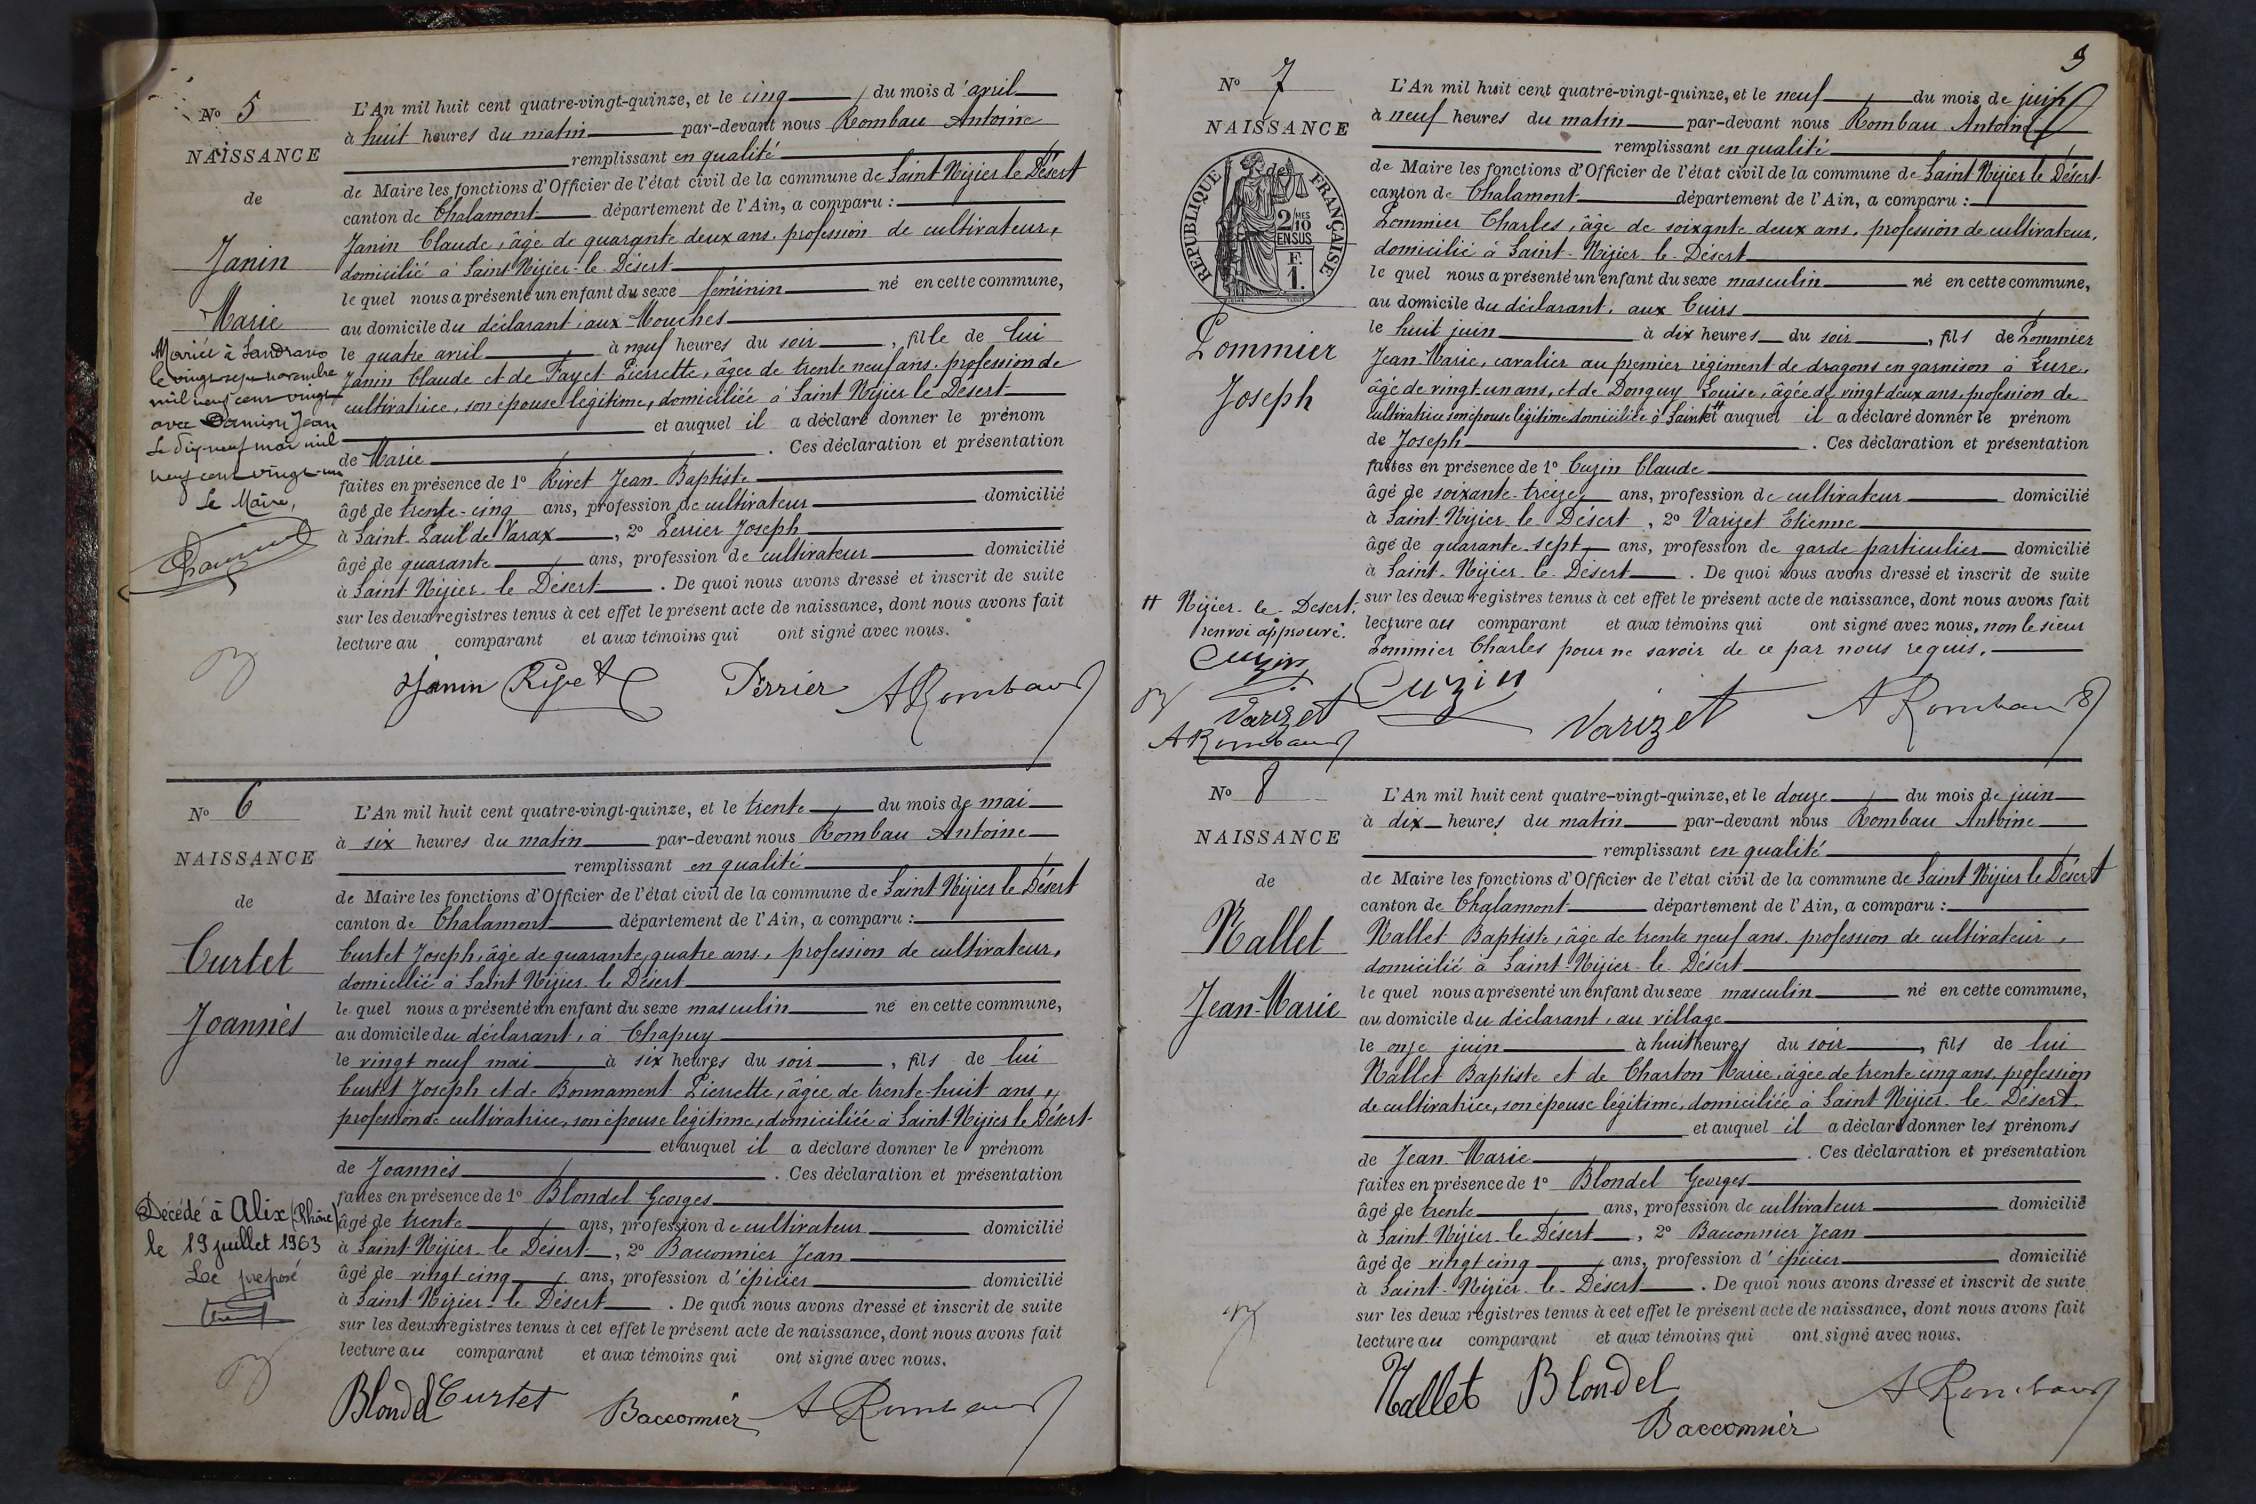 N° 5
NAISSANCE
de
Janin
Marie
Mariée à Sandrans
le vingt sept novembre
mil neuf cent vingt
avec Damion Jean
Le dix-neuf mai mil
neuf cent vingt-un
Le Maire,
L'An mil huit cent quatre-vingt-quinze, et le cinq du mois d'avril
à huit heures du matin par-devant nous Rombau Antoine
remplissant en qualité
de Maire les fonctions d'Officier de l'état civil de la commune de Saint Nizier le Désert
canton de Chalamont département de l'Ain, a comparu :
Janin Claude, âgé de quarante deux ans, profession de cultivateur,
domicilié à Saint-Nizier-le-Désert
le quel nous a présenté un enfant du sexe féminin né en cette commune,
au domicile du déclarant, aux Mouches
le quatre avril à neuf heures du soir, fille de lui
Janin Claude et de Fayet Pierrette, âgée de trente neuf ans, profession de
cultivatrice, son épouse légitime, domiciliée à Saint Nizier le Désert
et auquel il a déclaré donner le prénom
de Marie . Ces déclaration et présentation
faites en présence de 1° Rivet Jean-Baptiste
âgé de trente-cinq ans, profession de cultivateur domicilié
à Saint-Paul de Varax, 2° Perrier Joseph
âgé de quarante ans, profession de cultivateur domicilié
à Saint-Nizier-le-Désert . De quoi nous avons dressé et inscrit de suite
sur les deux registres tenus à cet effet le présent acte de naissance, dont nous avons fait
lecture au comparant et aux témoins qui ont signé avec nous.
Janin Rivet Perrier A Rombau
N° 6
NAISSANCE
de
Curtet
Joannès
Décédé à Alix (Rhône)
le 19 juillet 1963
Le préposé
L'An mil huit cent quatre-vingt-quinze, et le trente du mois de mai
à six heures du matin par-devant nous Rombau Antoine
remplissant en qualité
de Maire les fonctions d'Officier de l'état civil de la commune de Saint Nizier le Désert
canton de Chalamont département de l'Ain, a comparu :
Curtet Joseph, âgé de quarante quatre ans, profession de cultivateur,
domicilié à Saint Nizier-le-Désert
le quel nous a présenté un enfant du sexe masculin né en cette commune,
au domicile du déclarant, à Chapuy
le vingt neuf mai à six heures du soir, fils de lui
Curtet Joseph et de Bonnament Pierrette, âgée de trente-huit ans,
profession de cultivatrice, son épouse légitime, domiciliée à Saint-Nizier le Désert
et auquel il a déclaré donner le prénom
de Joannès . Ces déclaration et présentation
faites en présence de 1° Blondel Georges
âgé de trente ans, profession de cultivateur domicilié
à Saint Nizier-le-Désert, 2° Bacconnier Jean
âgé de vingt cinq ans, profession d'épicier domicilié
à Saint Nizier-le Désert . De quoi nous avons dressé et inscrit de suite
sur les deux registres tenus à cet effet le présent acte de naissance, dont nous avons fait
lecture au comparant et aux témoins qui ont signé avec nous.
Blondel Curtet Bacconnier A Rombau
9
N° 7
NAISSANCE
de
RÉPUBLIQUE FRANÇAISE
2/10 MES
EN SUS
F.
1.
Pommier
Joseph
L'An mil huit cent quatre-vingt-quinze, et le neuf du mois de juin
à neuf heures du matin par-devant nous Rombau Antoine
remplissant en qualité
de Maire les fonctions d'Officier de l'état civil de la commune de Saint Nizier le Désert
canton de Chalamont département de l'Ain, a comparu :
Pommier Charles, âgé de soixante deux ans, profession de cultivateur,
domicilié à Saint-Nizier-le-Désert
le quel nous a présenté un enfant du sexe masculin né en cette commune,
au domicile du déclarant, aux Cuirs
le huit juin à dix heures du soir, fils de Pommier
Jean-Marie, cavalier au premier régiment de dragons en garnison à Lure,
âgé de vingt-un ans, et de Donguy Louise, âgée de vingt deux ans, profession de
cultivatrice son épouse légitime domiciliée à Saint # et auquel il a déclaré donner le prénom
de Joseph . Ces déclaration et présentation
faites en présence de 1° Cuzin Claude
âgé de soixante-treize ans, profession de cultivateur domicilié
à Saint-Nizier-le-Désert, 2° Varizet Etienne
âgé de quarante-sept ans, profession de garde particulier domicilié
à Saint-Nizier-le-Désert . De quoi nous avons dressé et inscrit de suite
sur les deux registres tenus à cet effet le présent acte de naissance, dont nous avons fait
lecture au comparant et aux témoins qui ont signé avec nous, non le sieur
Pommier Charles pour ne savoir de ce par nous requis.
# Nizier-le-Desert,
renvoi approuvé.
Cuzin
Varizet
A Rombau
Cuzin Varizet A Rombau
N° 8
NAISSANCE
de
Nallet
Jean-Marie
L'An mil huit cent quatre-vingt-quinze, et le douze du mois de juin
à dix heures du matin par-devant nous Rombau Antoine
remplissant en qualité
de Maire les fonctions d'Officier de l'état civil de la commune de Saint Nizier le Désert
canton de Chalamont département de l'Ain, a comparu :
Nallet Baptiste, âgé de trente neuf ans, profession de cultivateur,
domicilié à Saint-Nizier-le-Désert
le quel nous a présenté un enfant du sexe masculin né en cette commune,
au domicile du déclarant, au village
le onze juin à huit heures du soir, fils de lui
Nallet Baptiste et de Charton Marie, âgée de trente cinq ans, profession
de cultivatrice, son épouse légitime, domiciliée à Saint Nizier-le-Désert.
et auquel il a déclaré donner les prénoms
de Jean-Marie . Ces déclaration et présentation
faites en présence de 1° Blondel Georges
âgé de trente ans, profession de cultivateur domicilié
à Saint Nizier-le-Désert, 2° Bacconnier Jean
âgé de vingt cinq ans, profession d'épicier domicilié
à Saint-Nizier-le-Désert . De quoi nous avons dressé et inscrit de suite
sur les deux registres tenus à cet effet le présent acte de naissance, dont nous avons fait
lecture au comparant et aux témoins qui ont signé avec nous.
Nallet Blondel A Rombau
Bacconnier